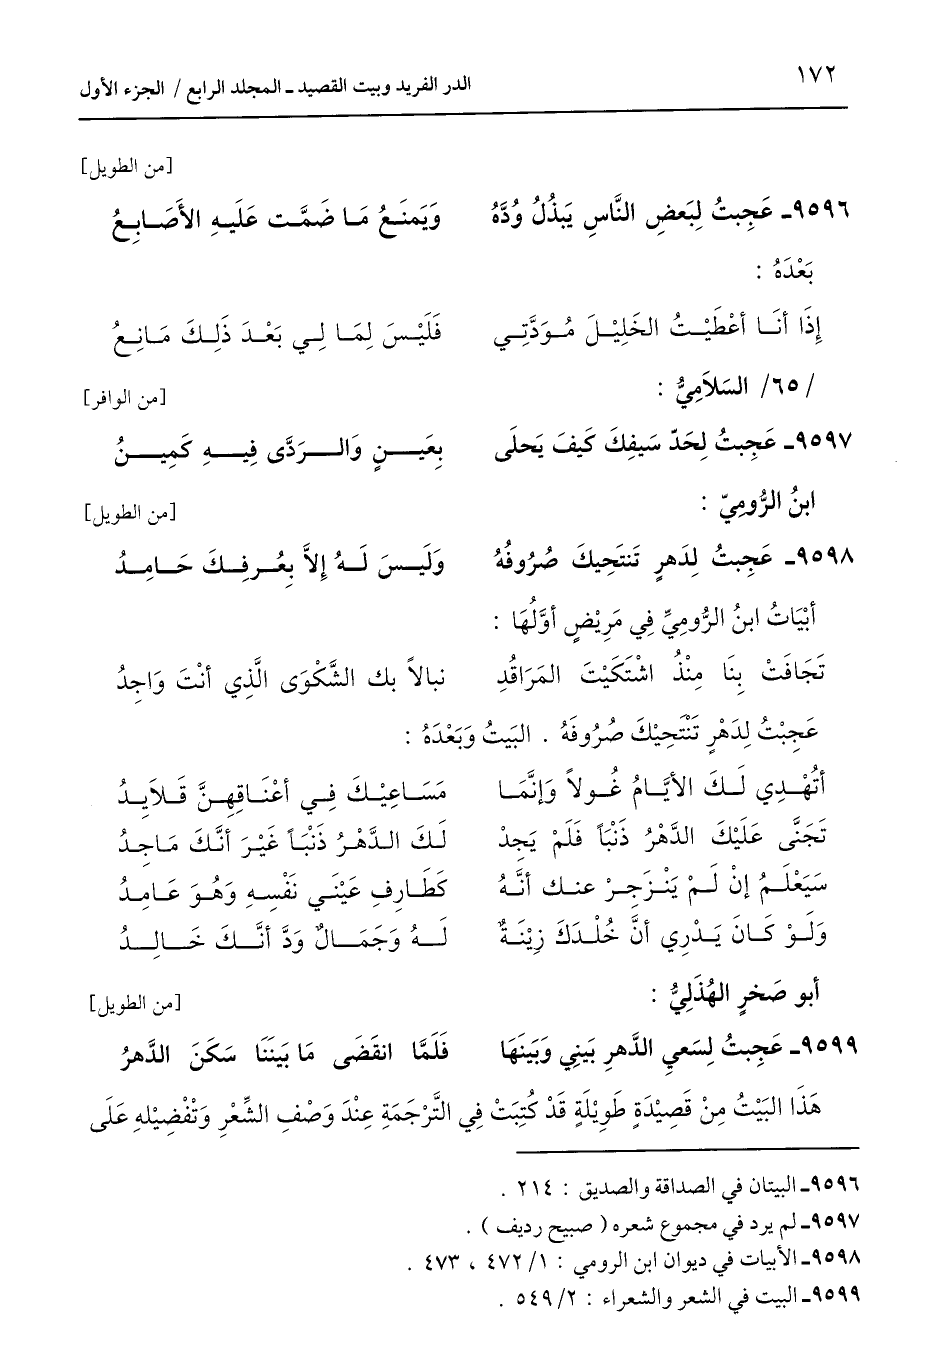 ١٧٢
الدر الفريد وبيت القصيد ـ المجلد الرابع / الجزء الأول
[من الطويل]
٩٥٩٦ـ عَجِبتُ لِبَعضِ النَّاسِ يَبْذُلُ وُدَّهُ وَيَمنَعُ مَا ضَمَّت عَلَيهِ الأَصَابِعُ
بَعْدَهُ :
إِذَا أَنَا أَعْطَيْتُ الخَلِيْلَ مُوَدَّتِي فَلَيْسَ لِمَا لِي بَعْدَ ذَلِكَ مَانِعُ
/٦٥/ السَلاَمِيُّ :
[من الوافر]
٩٥٩٧ـ عَجِبتُ لِحَدّ سَيفِكَ كَيفَ يَحلَى بِعَينٍ وَالرَدَّى فِيهِ كَمِينُ
ابنُ الرُّومِيّ :
[من الطويل]
٩٥٩٨ـ عَجِبتُ لِدَهرٍ تَنتَحِيكَ صُرُوفُهُ وَلَيسَ لَهُ إِلاَّ بِعُرفِكَ حَامِدُ
أَبْيَاتُ ابنُ الرُّومِيِّ فِي مَرِيْضٍ أَوَّلُهَا :
تَجَافَتْ بِنَا مِنْذُ اشْتَكَيْتَ المَرَاقُدِ نبالاً بك الشَّكْوَى الَّذِي أَنْتَ وَاجِدُ
عَجِبْتُ لِدَهْرٍ تَنْتَحِيْكَ صُرُوفُهُ . البَيتُ وَبَعْدَهُ :
أَتُهْدِي لَكَ الأَيَّامُ غُولاً وَإِنَّمَا مَسَاعِيْكَ فِي أَعْنَاقِهِنَّ قَلاَيِدُ
تَجَنَّى عَلَيْكَ الدَّهْرُ ذَنْبَاً فَلَمْ يَجِدْ لَكَ الدَّهْرُ ذَنْبَاً غَيْرَ أَنَّكَ مَاجِدُ
سَيَعْلَمُ إِنْ لَمْ يَنْزَجِرْ عنك أَنَّهُ كَطَارِفِ عَيْنَي نَفْسِهِ وَهُوَ عَامِدُ
وَلَوْ كَانَ يَدْرِي أَنَّ خُلْدَكَ زِيْنَةٌ لَهُ وَجَمَالٌ وَدَّ أَنَّكَ خَالِدُ
أبو صَخرٍ الهُذَلِيُّ :
[من الطويل]
٩٥٩٩ـ عَجِبتُ لِسَعيِ الدَّهرِ بَينِي وَبَينَهَا فَلَمَّا انقَضَى مَا بَينَنَا سَكَنَ الدَّهرُ
هَذَا البَيْتُ مِنْ قَصِيْدَةٍ طَوِيْلَةٍ قَدْ كُتِبَتْ فِي التَّرْجَمَةِ عِنْدَ وَصْفِ الشِّعْرِ وَتَفْضِيْلِهِ عَلَى
٩٥٩٦ـ البيتان في الصداقة والصديق : ٢١٤ .
٩٥٩٧ـ لم يرد في مجموع شعره ( صبيح رديف ) .
٩٥٩٨ـ الأبيات في ديوان ابن الرومي : ١/ ٤٧٢ ، ٤٧٣ .
٩٥٩٩ـ البيت في الشعر والشعراء : ٢/ ٥٤٩ .